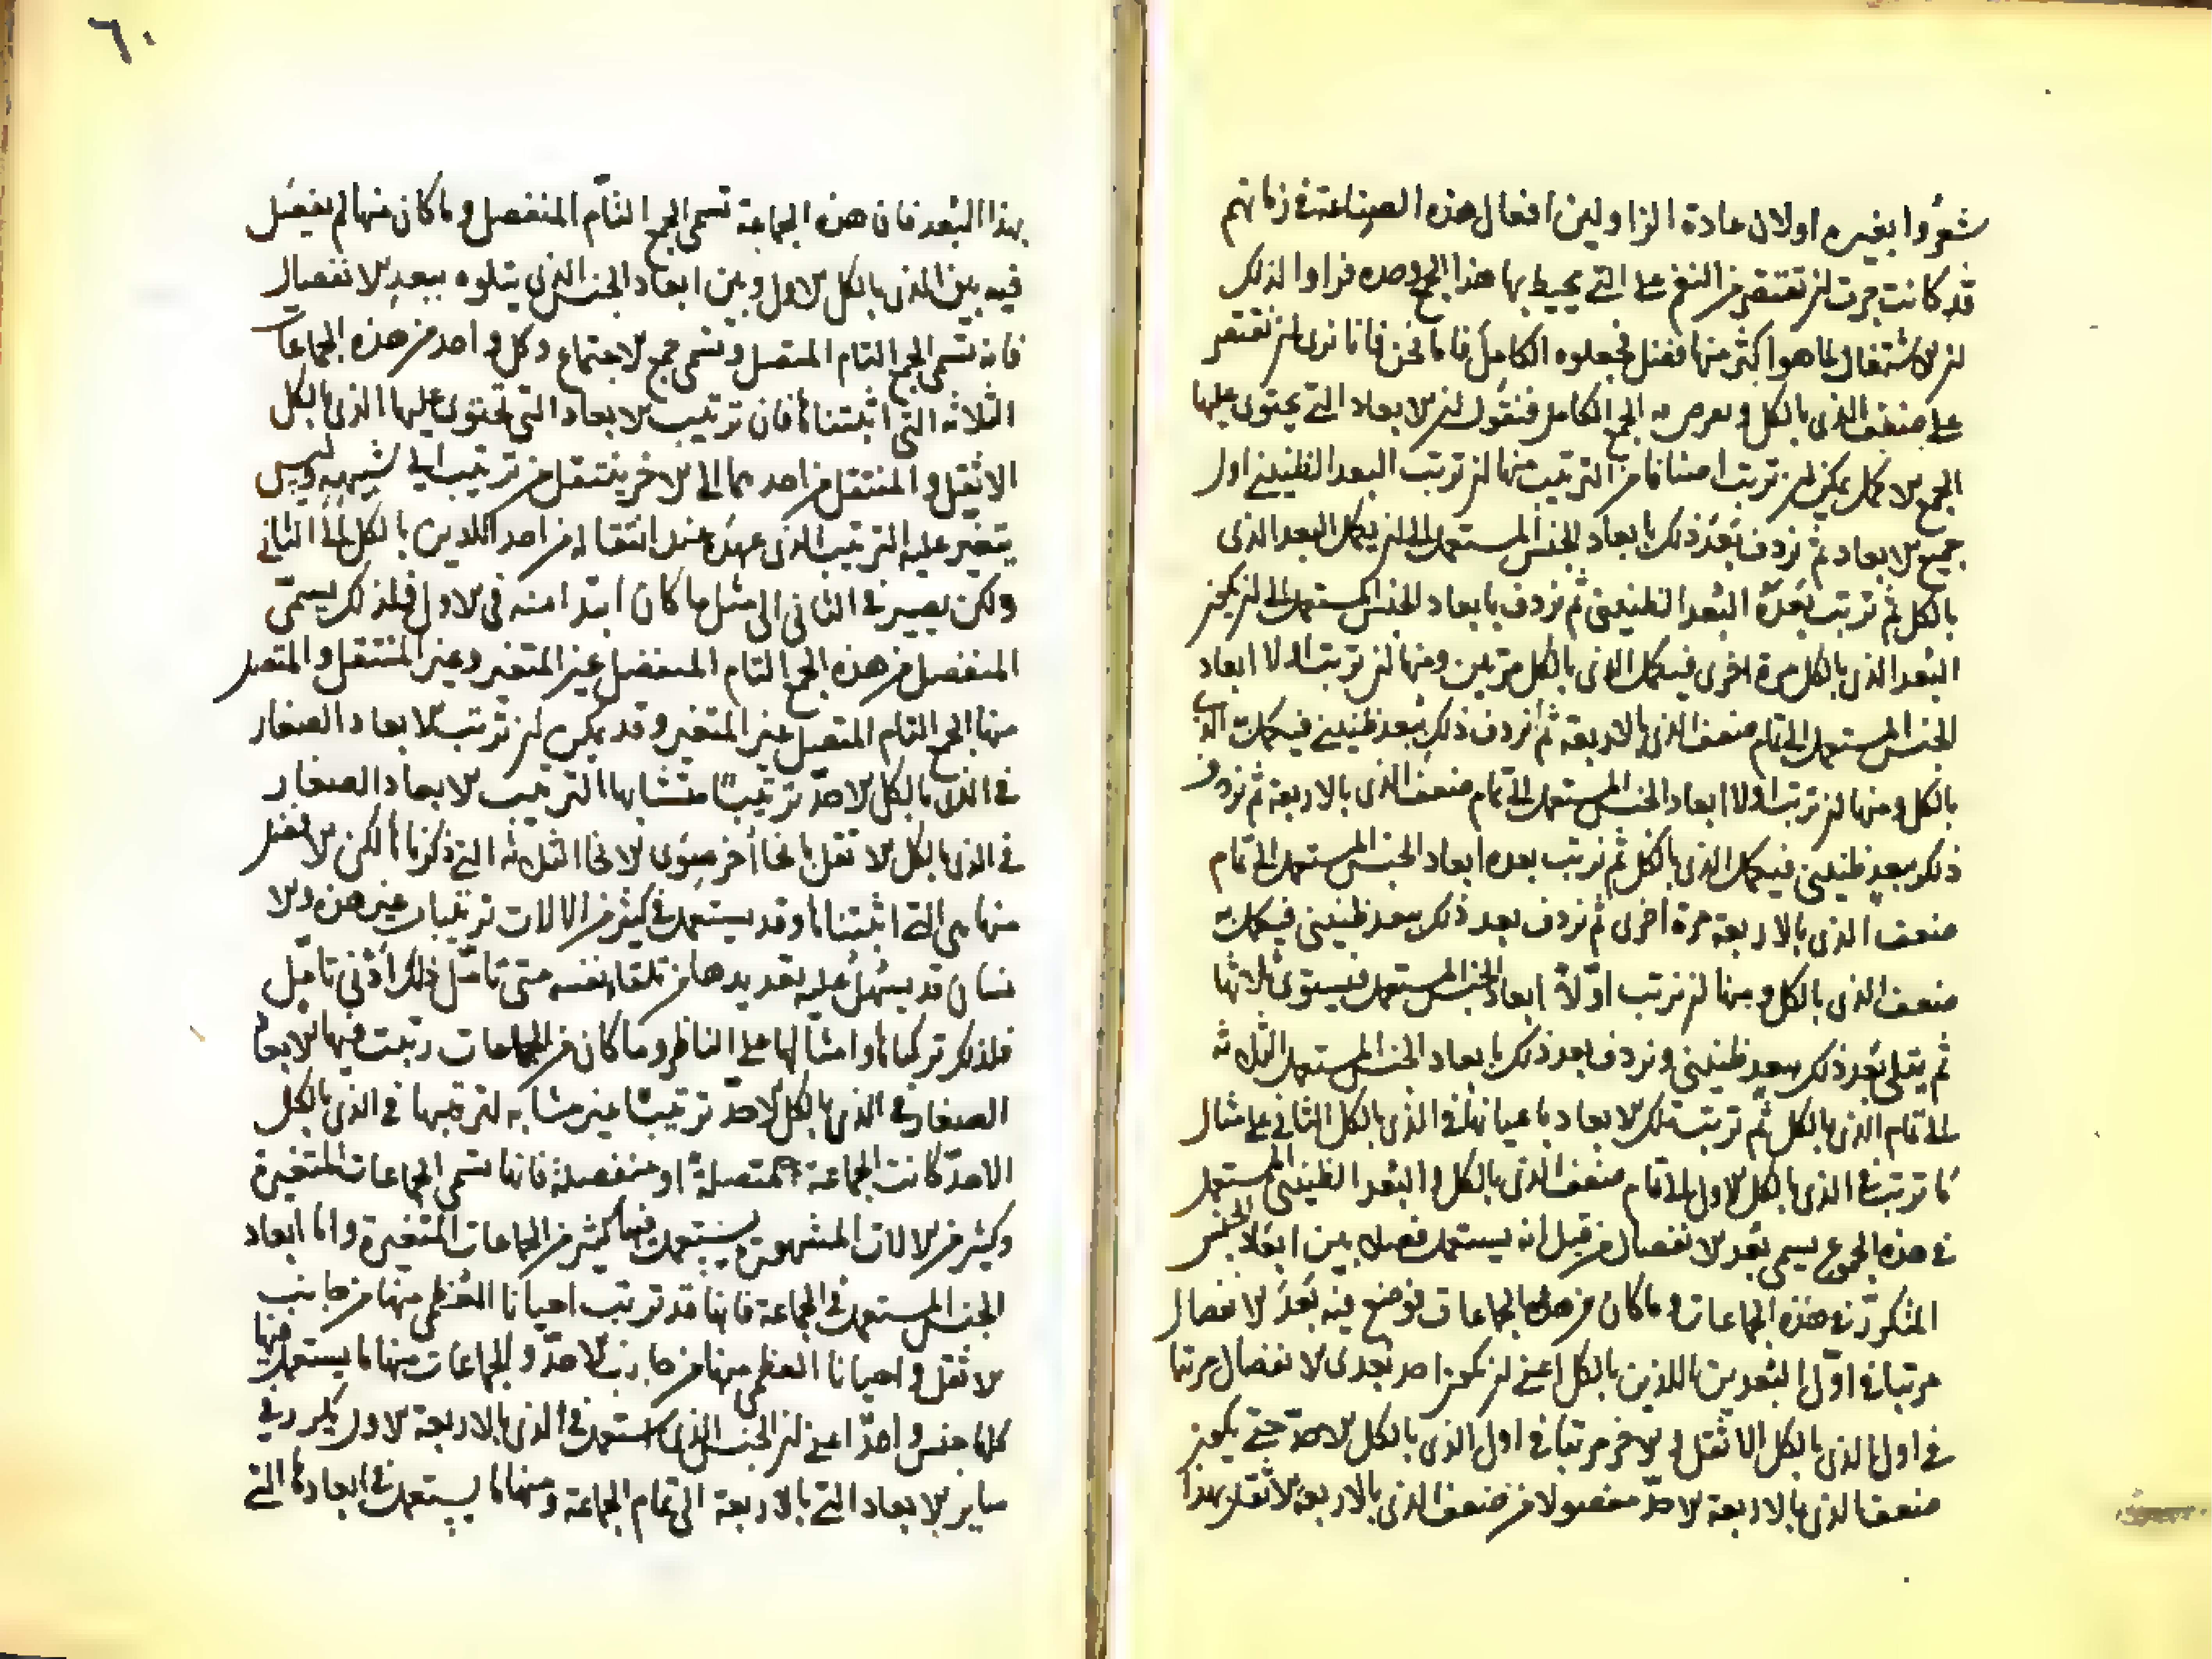 شعروا بغيره اولان عادة المزاولين افعال هذه الصناعة في زمانهم
قد كانت جرت ان تقتصر من النغم على التي يحيط بها هذا الجمع وحده فراوا لذلك
ان الاشتغال بما هو اكثر منها فضل فجعلوه الكامل فاما نحن فانا نرى ان نقتصر
على ضعف الذي بالكل ونفرض به الجمع الكامل فنقول ان الابعاد التي يحتوى عليها
الجمع الاكمل يمكن ان ترتب اصنافا من الترتيب منها ان نرتب البعد الطنيني اول
جميع الابعاد ثم نردف بعد ذلك بابعاد الجنس المستعمل الى ان يكمل البعد الذي
بالكل ثم نرتب بعده البعد الطنيني ثم نردف بابعاد الجنس المستعمل الى ان يكمل
البعد الذي بالكل مرة اخرى فيكمل الذي بالكل مرتين ومنها ان نرتب اولا ابعاد
الجنس المستعمل الى تمام ضعف الذي بالاربعة ثم نردف ذلك ببعد طنيني فيكمل الذي
بالكل ومنها ان نرتب اولا ابعاد الجنس المستعمل الى تمام ضعف الذي بالاربعة ثم نردف
ذلك ببعد طنيني فيكمل الذي بالكل ثم نرتب بعده ابعاد الجنس المستعمل الى تمام
ضعف الذي بالاربعة مرة اخرى ثم نردف بعد ذلك ببعد طنيني فيكمل به
ضعف الذي بالكل ومنها ان نرتب اولا ابعاد الجنس المستعمل فيستوى ثلاثتها
ثم يتلى بعد ذلك ببعد طنيني ونردف بعد ذلك بابعاد الجنس المستعمل الثلثة
الى تمام الذي بالكل ثم نرتب تلك الابعاد باعيانها في الذي بالكل الثاني على مثال
ما ترتبت في الذي بالكل الاول الى تمام ضعف الذي بالكل والبعد الطنيني المستعمل
في هذه الجموع يسمى بعد الانفصال من قبل انه يستعمل فصلا بين ابعاد الجنس
المتكررة في هذه الجماعات وما كان من هذه الجماعات توضع فيه بعد الانفصال
مرتبا في اول البعدين اللذين بالكل اعني ان يكون احد بعدى الانفصال مرتبا
في اول الذي بالكل الاثقل والاخر مرتبا في اول الذي بالكل الاحد حتى يكون
ضعف الذي بالاربعة الاحد مفصولا من ضعف الذي بالاربعة الاثقل بهذا
٦٠
بهذا البعد فان هذه الجماعة تسمى الجمع التام المنفصل وما كان منها لم يفصل
فيه بين الذي بالكل الاول وبين ابعاد الجنس الذي يتلوه ببعد الانفصال
فانه تسمى الجمع التام المتصل وتسمى جمع الاجتماع وكل واحد من هذه الجماعات
الثلاثة التي اثبتناها فان ترتيب الابعاد التي تحتوى عليها الذي بالكل
الاثقل والمنتقل من احدهما الى الاخر ينتقل من ترتيب الى شبيهه وليس
يتغير عليه الترتيب الذي عهده عند انتقاله من احد اللذين بالكل الى الثاني
ولكن يصير في الثاني الى مثل ما كان ابتدا منه في الاول فلذلك يسمى
المنفصل من هذه الجمع التام المنفصل غير المتغير وغير المنتقل والمتصل
منها الجمع التام المتصل غير المتغير وقد يمكن ان ترتب الابعاد الصغار
في الذي بالكل الاحد ترتيبا متشابها الترتيب الابعاد الصغار
في الذي بالكل الاثقل بانحا أخر سوى الانحا الثلثة التي ذكرناها لكن الافضل
منها هي التي اثبتناها وقد يستعمل في كثير من الالات ترتيبات غير هذه والا
نسان قد يسهل عليه تعديدها من تلقا نفسه متى تامل ذلك ادنى تامل
فلذلك تركناها وامثالها على الناظر وما كان من الجماعات رتبت فيها الابعاد
الصغار في الذي بالكل الاحد ترتيبا غير مشابه لترتيبها في الذي بالكل
الاحد كانت الجماعة متصلة او منفصلة فانها تسمى الجماعات المتغيرة
وكثير من الالات المشهورة يستعمل فيها كثير من الجماعات المتغيرة واما ابعاد
الجنس المستعمل في الجماعة فانها قد ترتب احيانا العظمى منها من جانب
الاثقل واحيانا العظمى منها من جانب الاحد والجماعات منها ما يستعمل فيها
كلها جنس واحد اعني ان الجنس الذي استعمل في الذي بالاربعة الاول يكرر في
ساير الابعاد التي بالاربعة الى تمام الجماعة ومنها ما يستعمل في ابعادها التي